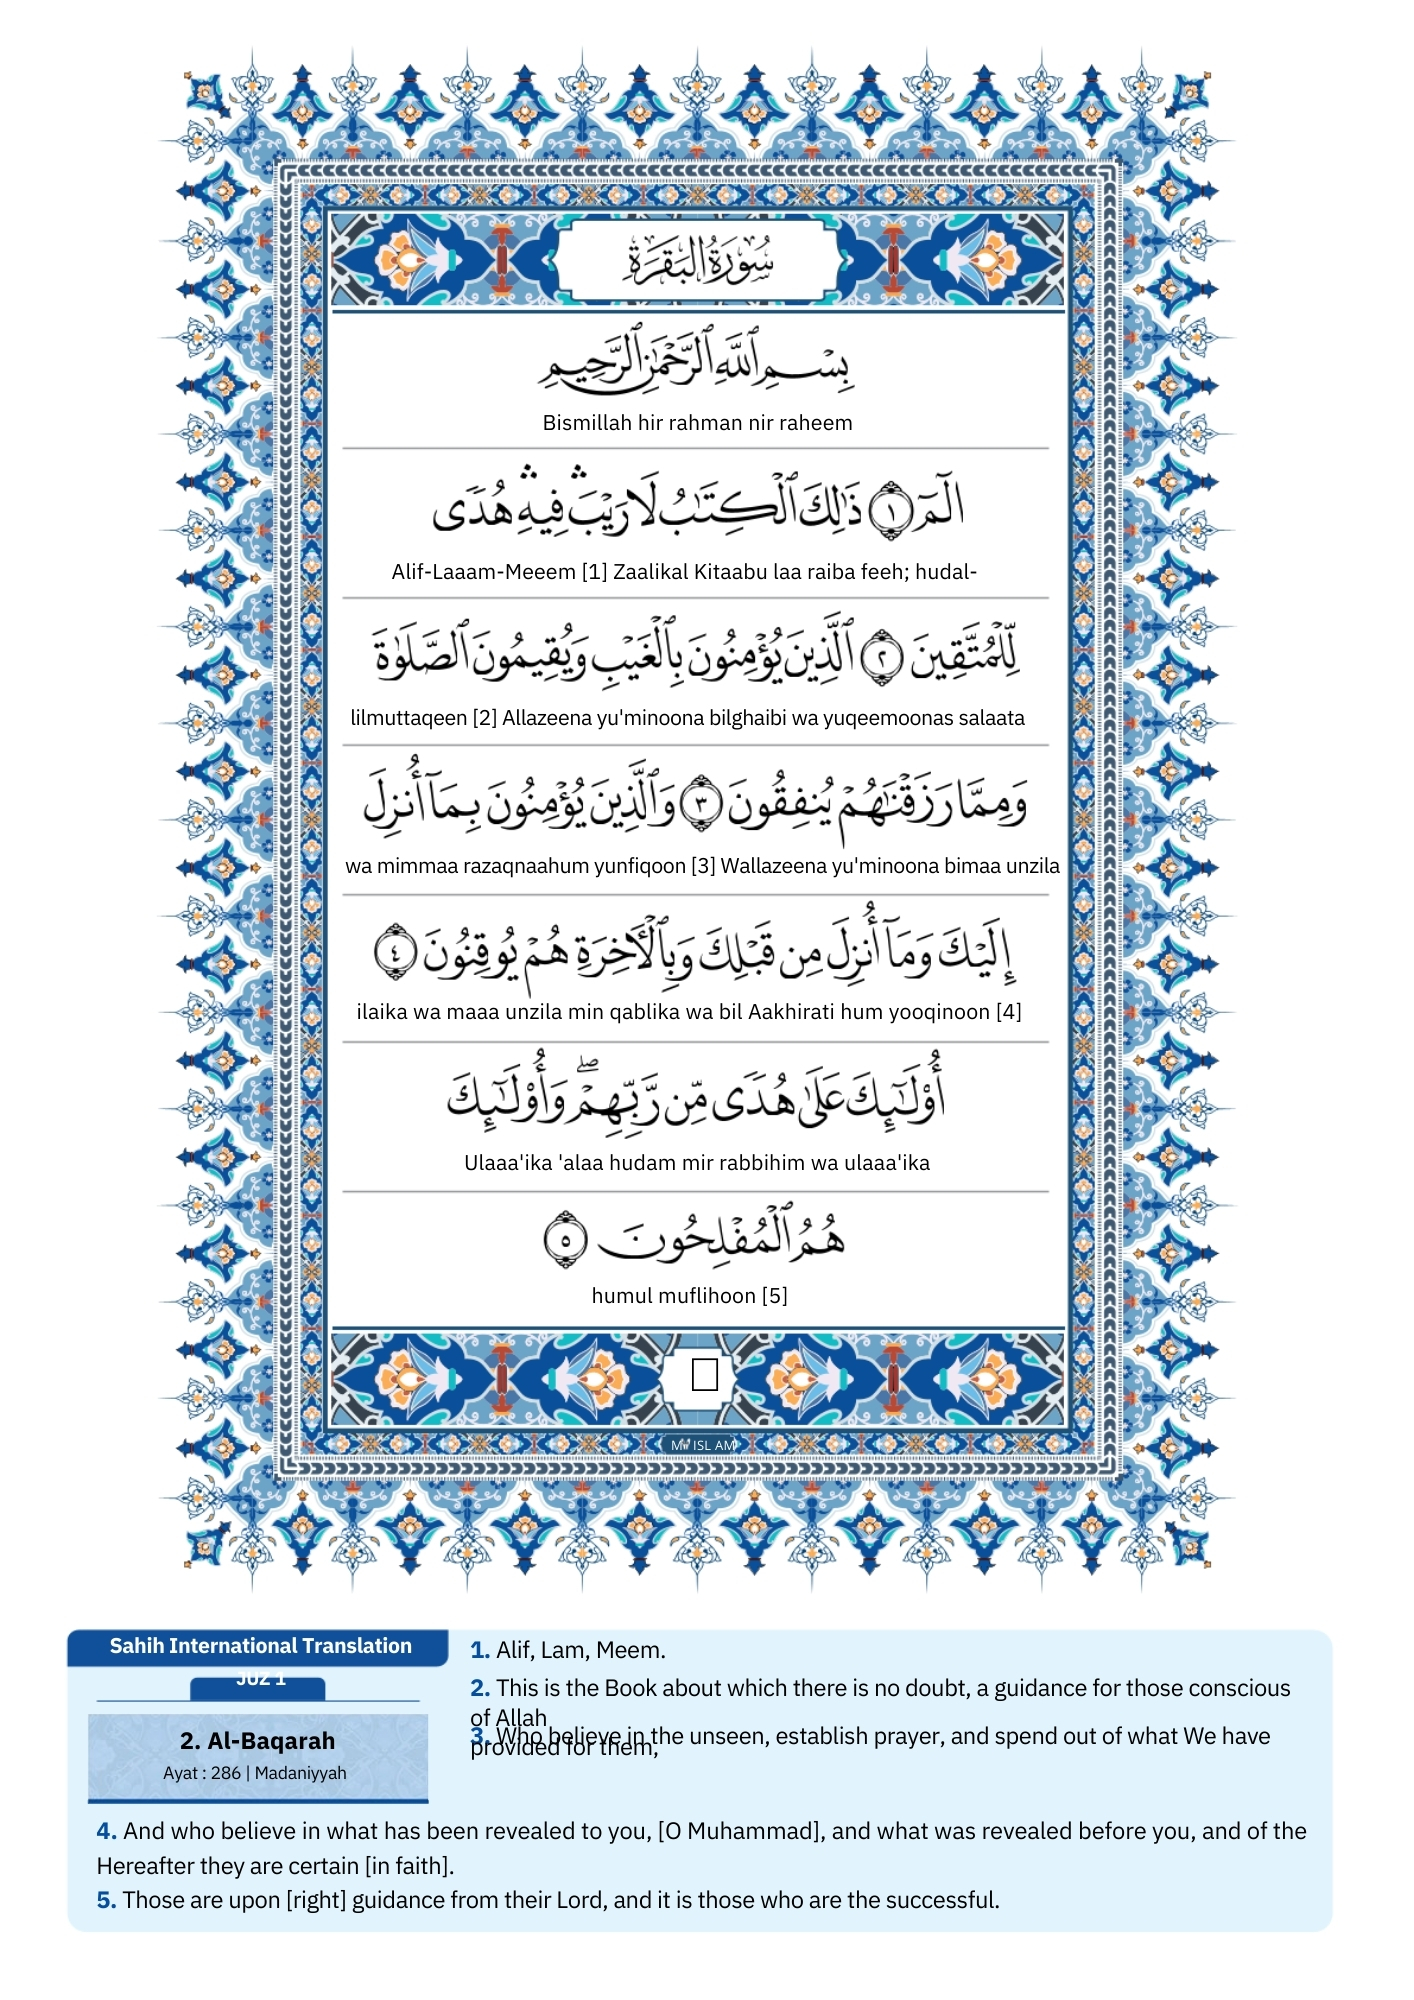 سُورَةُ البَقَرَةِ
بِسْمِ ٱللَّهِ ٱلرَّحْمَٰنِ ٱلرَّحِيمِ
Bismillah hir rahman nir raheem
الٓمٓ ١ ذَٰلِكَ ٱلْكِتَٰبُ لَا رَيْبَ ۛ فِيهِ ۛ هُدًى
Alif-Laaam-Meeem [1] Zaalikal Kitaabu laa raiba feeh; hudal-
لِّلْمُتَّقِينَ ٢ ٱلَّذِينَ يُؤْمِنُونَ بِٱلْغَيْبِ وَيُقِيمُونَ ٱلصَّلَوٰةَ
lilmuttaqeen [2] Allazeena yu'minoona bilghaibi wa yuqeemoonas salaata
وَمِمَّا رَزَقْنَٰهُمْ يُنفِقُونَ ٣ وَٱلَّذِينَ يُؤْمِنُونَ بِمَآ أُنزِلَ
wa mimmaa razaqnaahum yunfiqoon [3] Wallazeena yu'minoona bimaa unzila
إِلَيْكَ وَمَآ أُنزِلَ مِن قَبْلِكَ وَبِٱلْأَخِرَةِ هُمْ يُوقِنُونَ ٤
ilaika wa maaa unzila min qablika wa bil Aakhirati hum yooqinoon [4]
أُو۟لَٰٓئِكَ عَلَىٰ هُدًى مِّن رَّبِّهِمْ ۖ وَأُو۟لَٰٓئِكَ
Ulaaa'ika 'alaa hudam mir rabbihim wa ulaaa'ika
هُمُ ٱلْمُفْلِحُونَ ٥
humul muflihoon [5]
Sahih International Translation
JUZ 1
2. Al-Baqarah
Ayat : 286 | Madaniyyah
1. Alif, Lam, Meem.
2. This is the Book about which there is no doubt, a guidance for those conscious
of Allah
3. Who believe in the unseen, establish prayer, and spend out of what We have
provided for them,
4. And who believe in what has been revealed to you, [O Muhammad], and what was revealed before you, and of the
Hereafter they are certain [in faith].
5. Those are upon [right] guidance from their Lord, and it is those who are the successful.